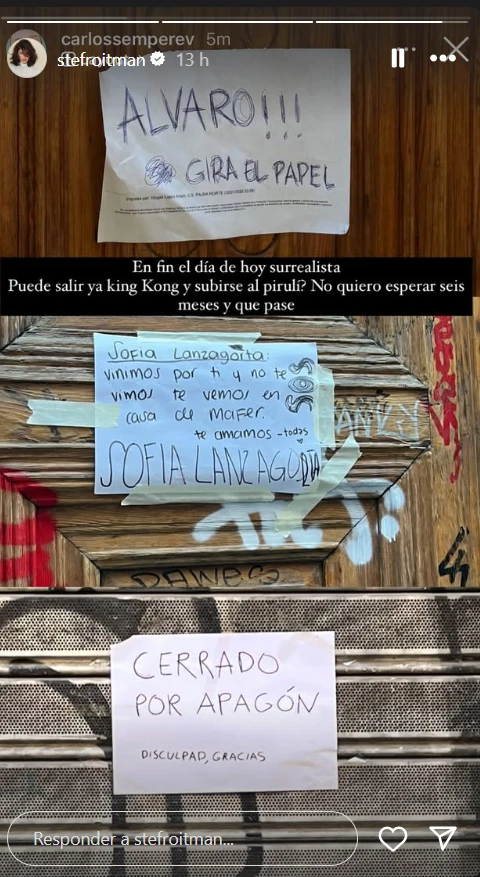 carlossemperev 5m
stefroitman 13 h
ALVARO!!!
GIRA EL PAPEL
En fin el día de hoy surrealista
Puede salir ya king Kong y subirse al pirulí? No quiero esperar seis
meses y que pase
Sofia Lanzagorta:
vinimos por ti y no te
vimos te vemos en
casa de Mafer.
te amamos -todas
SOS
SOFIA LANZAGORTA
DAWES
CERRADO
POR APAGÓN
DISCULPAD, GRACIAS
Responder a stefroitman...